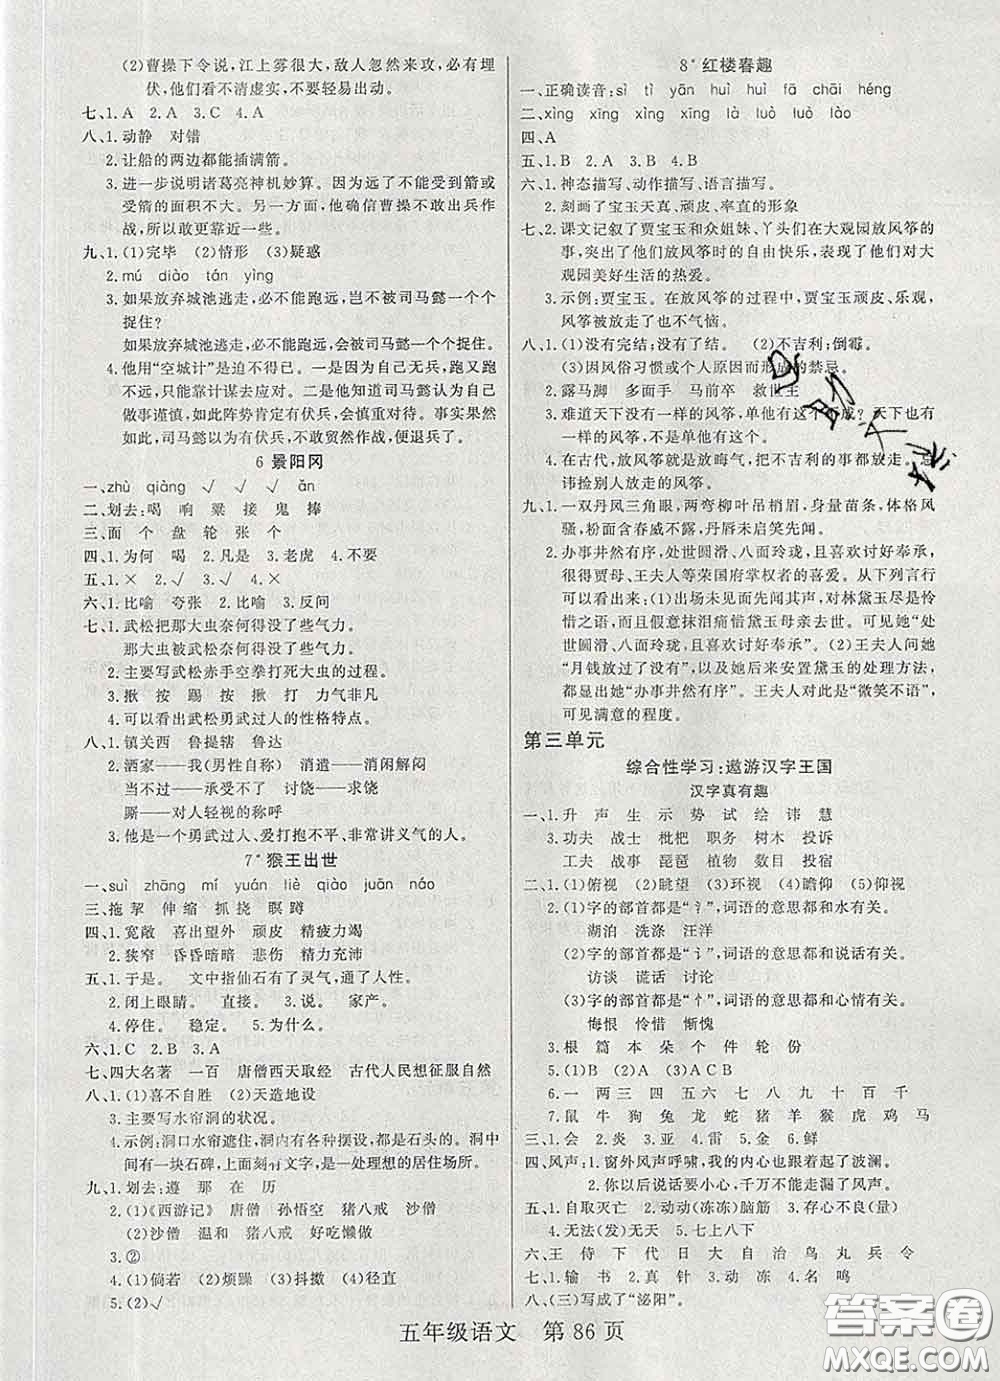 (2)曹操下令说,江上雾很大,敌人忽然来攻,必有埋
伏,他们看不清虚实,不要轻易出动。
七、1.A 2.A 3.C 4.A
八、1.动静 对错
2.让船的两边都能插满箭。
3.进一步说明诸葛亮神机妙算。因为远了不能受到箭或
受箭的面积不大。另一方面,他确信曹操不敢出兵作
战,所以敢更靠近一些。
九、1.(1)完毕 (2)情形 (3)疑惑
2.mú diào tán yìng
3.如果放弃城池逃走,必不能跑远,岂不被司马懿一个个
捉住?
如果放弃城池逃走,必不能跑远,会被司马懿一个个捉住。
4.他用“空城计”是迫不得已。一是敌兵太多,硬又跑又
不远,只能靠计谋去应对。二是他知道司马懿认为自己
做事谨慎,如此阵势肯定有伏兵,不敢贸然作战。事实果然
如此,司马懿以为有伏兵,不敢贸然作战,退兵了。
6 景阳冈
一、zhù qiàng √ √ √ ǎn
二、划去:喝 响 粱 接 鬼 捧
三、面 个 盘 轮 张 个
四、1.为何 喝 2.凡是 3.老虎 4.不要
五、1.× 2.√ 3.√ 4.√
六、1.比喻 夸张 2.比喻 3.反问
七、1.武松把那大虫奈何得没了些气力。
那大虫被武松奈何得没了些气力。
2.主要写武松赤手空拳打死大虫的过程。
3.揪 按 踢 按 揪 打 力气非凡
4.可以看出武松勇武过人的性格特点。
八、1.镇关西 鲁提辖 鲁达
2.洒家——我(男性自称) 消遣——消闲解闷
吃不过——承受不了 讨饶——求饶
厮——对人轻视的称呼
3.他是一个勇武过人、爱打抱不平、非常讲义气的人。
7* 猴王出世
一、suì zhāng mí yuán liè qiào juān náo
三、拖 挈 伸 缩 抓 挠 瞑 蹲
四、1.宽敞 喜出望外 顽皮 精疲力竭
2.狭窄 昏昏暗暗 悲伤 精力充沛
五、1.于是。 文中指仙石有了灵气,通了人性。
2.闭上眼睛。 直接。 3.说。 家产。
4.停住。 稳定。 5.为什么。
六、1.C 2.B 3.A
七、四大名著 一百 唐僧西天取经 古代人民想征服自然
八、1.(1)喜不自胜 (2)天造地设
3.主要写水帘洞的状况。
4.示例:洞口水帘遮住,洞内有各种摆设,都是石头的。洞中
间有一块石碑,上面刻有文字,是一处理想的居住场所。
九、1.划去:遵 那 在 历
2.(1)《西游记》 唐僧 孙悟空 猪八戒 沙僧
(2)沙僧 温和 猪八戒 好吃懒做
3.②
4.(1)倘若 (2)烦躁 (3)抖擞 (4)径直
5.(2)√
8* 红楼春趣
一、正确读音:sì tì yān huì huì fā chāi héng
二、xìng xīng xīng xīng là luò luò luò
四、A
五、1.B 2.A 3.B 4.B
六、1.神态描写、动作描写、语言描写。
2.刻画了宝玉天真、顽皮、率直的形象
七、2.课文记叙了贾宝玉和众姐妹、丫头们在大观园放风筝的
事,写出了他们放风筝时的自由快乐,表现了他们对大
观园美好生活的热爱。
3.示例:贾宝玉。在放风筝的过程中,贾宝玉顽皮、乐观,
风筝被放走了也不气恼。
八、1.(1)没有完结;没有了。 (2)不吉利;倒霉。
(3)因风俗习惯或个人原因而形成的禁忌。
2.露马脚 多面手 马前卒 救世主
3.难道天下没有一样的风筝,单他有这个不成?天下也有
一样的风筝,不是单他有这个。
4.在古代,放风筝就是放晦气,把不吉利的事都放走。忌
讳捡别人放走的风筝。
九、1.一双丹凤三角眼,两弯柳叶吊梢眉,身量苗条,体格风
骚,粉面含春威不露,丹唇未启笑先闻。
2.办事井然有序,处世圆滑、八面玲珑,且喜欢讨好奉承,
很得贾母、王夫人等荣国府掌权者的喜爱。从下列言行
可以看出:(1)出场未见面先闻其声,对林黛玉尽是怜
惜之语,而且假意抹泪痛惜黛玉母亲去世。可见她“处
世圆滑、八面玲珑,且喜欢讨好奉承”。(2)王夫人问她
“月钱放过了没有”,以及她后来安置黛玉的处理方法,
都显出她“办事井然有序”。王夫人对此是“微笑不语”,
可见满意的程度。
第三单元
综合性学习:遨游汉字王国
汉字真有趣
一、1.升 声 生 示 势 试 绘 讳 慧
3.功夫 战士 枇杷 职务 树木 投诉
工夫 战事 琵琶 植物 数目 投宿
二、1.(1)俯视 (2)眺望 (3)环视 (4)瞻仰 (5)仰视
2.(1)字的部首都是“氵”,词语的意思都和水有关。
湖泊 洗涤 汪洋
(2)字的部首都是“讠”,词语的意思都和说话有关。
访谈 谎话 讨论
(3)字的部首都是“忄”,词语的意思都和心情有关。
悔恨 怜惜 惭愧
3.根 篇 本 朵 个 件 轮 份
5.(1)B (2)A (3)ACB
6.一 两 三 四 五 六 七 八 九 十 百 千
7.鼠 牛 狗 兔 龙 蛇 猪 羊 猴 虎 鸡 马
三、1.会 2.炎 3.亚 4.雷 5.金 6.鲜
四、风声:1.窗外风声呼啸,我的内心也跟着起了波澜。
2.你以后说话要小心,千万不能走漏了风声。
五、1.自取灭亡 2.动动(冻冻)脑筋 3.存心不良(量)
4.无法(发)无天 5.七上八下
六、王 侍 下 代 日 大 自 治 鸟 丸 兵 令
七、1.输 书 2.真 针 3.动 冻 4.名 鸣
八、(三)写成了“泌阳”。
五年级语文 第86页
答案圈
MXQE.COM